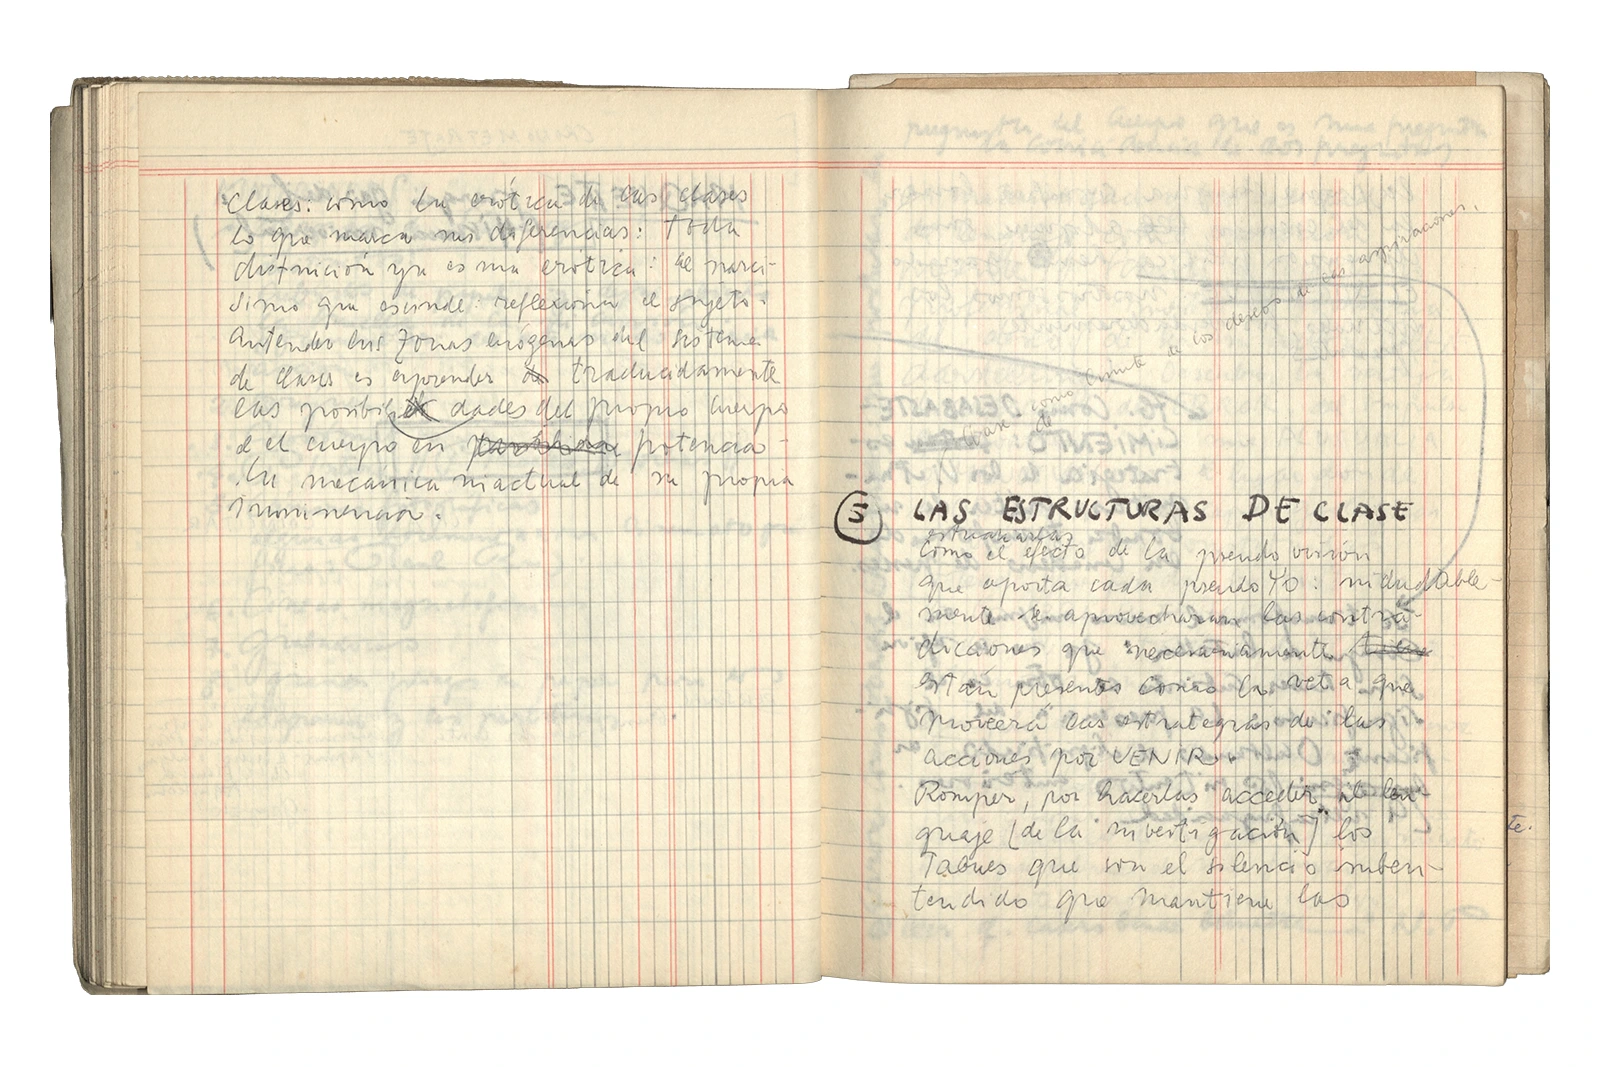 clases: como la erótica de las clases
lo que marca sus diferencias: toda
definición ya es una erótica: el narci-
sismo que esconde: reflexiona el sujeto.
Entender las zonas erógenas del sistema
de clases es aprender traducidamente
las posibilidades del propio cuerpo
el cuerpo en potencia
la mecánica inactual de su propia
insurrección.
clase como límite de los deseos de las aspiraciones.
5 LAS ESTRUCTURAS DE CLASE
estudiarlas
como el efecto de la pseudo visión
que aporta cada pseudo Yo: indudable-
mente se aprovecharan las contra-
dicciones que necesariamente
están presentes como la veta que
proveerá las estrategias de las
acciones por VENIR.
Romper, por hacerlas acceder al len-
guaje [de la investigación] los
Tabues que son el silencio suben-
tendido que mantiene las
te.